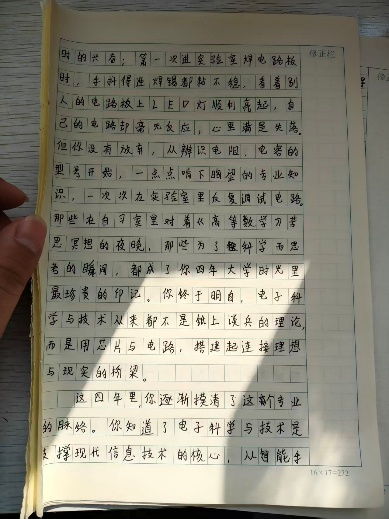 的兴奋；第一次进实验室焊电路板
时，手抖得连焊锡都粘不稳，看着别
人的电路板上LED灯顺利亮起，自
己的电路却毫无反应，心里满是失落。
但你没有放弃，从辨识电阻、电容的
型号开始，一点点啃下晦涩的专业知
识，一次次在实验室里反复调试电路，
那些在自习室里对着《高等数学》苦
思冥想的夜晚，那些为了科学而思
考的瞬间，都成了你四年大学时光里
最珍贵的印记。你终于明白，电子科
学与技术从来都不是纸上谈兵的理论，
而是用芯片与电路，搭建起连接理想
与现实的桥梁。
这四年里，你逐渐摸清了这个专业
的脉络。你知道了电子科学与技术是
支撑现代信息技术的核心，从智能手